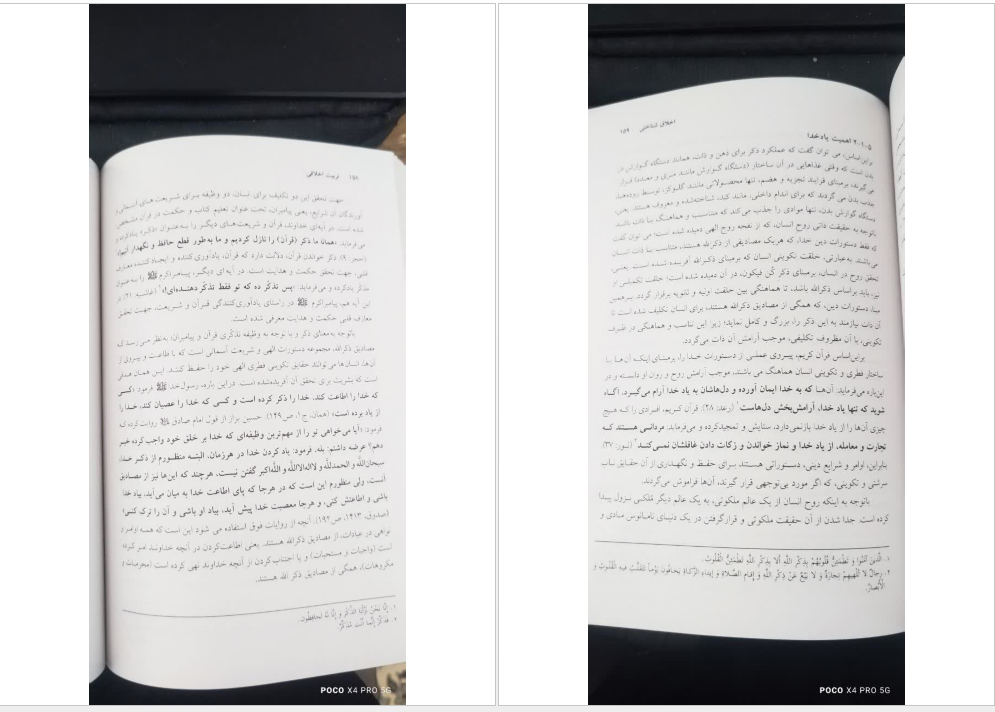 ۱۵۸ تربیت اخلاقی
جهت تحقق این دو تکلیف برای انسان، دو وظیفه برای شریعت‌های آسمانی و
آورندگان آن شرایع، یعنی پیامبران، تحت عنوان تعلیم کتاب و حکمت در قرآن مشخص
شده است. در آیه‌ای خداوند، قرآن و شریعت‌های دیگر را به عنوان «ذکر»
می‌فرماید: «همانا ما ذکر (قرآن) را نازل کردیم و ما به‌طور قطع حافظ و نگهدار آنیم»
(حجر: ۹). ذکر خواندن قرآن، دلالت دارد که قرآن، یادآوری‌کننده و ایجادکننده معارف
قلبی، جهت تحقق حکمت و هدایت است. در آیه‌ای دیگر، پیامبر اکرم ﷺ را به عنوان
مذکر یادکرده، و می‌فرماید: «پس تذکر ده که تو فقط تذکر دهنده‌ای»۲ (غاشیه: ۲۱). در
این آیه هم، پیامبر اکرم ﷺ در راستای یادآوری‌کنندگی قرآن و شریعت، جهت تحقق
معارف قلبی حکمت و هدایت معرفی شده است.
باتوجه به‌معنای ذکر و با توجه به وظیفه تذکری قرآن و پیامبران، به‌نظر می‌رسد که
مصادیق ذکرالله، مجموعه دستورات الهی و شریعت آسمانی است که با طاعت و پیروی از
آن‌ها، انسان‌ها می‌توانند حقایق تکوینی فطری الهی خود را حفظ کنند. این همان هدفی
است که بشریت برای تحقق آن آفریده‌شده است. دراین باره، رسول خدا ﷺ فرمود: «کسی
که خدا را اطاعت کند، خدا را ذکر کرده است و کسی که خدا را عصیان کند، خدا را
از یاد برده است» (همان، ج۱، ص۱۴۹). حسین بزاز از قول امام صادق روایت کرده که
فرمود: «آیا می‌خواهی تو را از مهم‌ترین وظیفه‌ای که خدا بر خلق خود واجب کرده خبر
دهم؟ عرضه داشتم: بله. فرمود: یاد کردن خدا در هرزمان. البته منظورم از ذکر خدا،
سبحان‌الله و الحمدلله و لااله‌الاالله و الله‌اکبر گفتن نیست، هرچند که این‌ها نیز از مصادیق
آنست، ولی منظورم این است که در هرجا که پای اطاعت خدا به میان می‌آید، بیاد خدا
باشی و اطاعتش کنی، و هرجا معصیت خدا پیش آید، بیاد او باشی و آن را ترک کنی»
(صدوق، ۱۴۱۳، ص۱۹۲). آنچه از روایات فوق استفاده می شود این است که همه اوامر و
نواهی در عبادات، از مصادیق ذکرالله هستند. یعنی اطاعت‌کردن در آنچه خداوند امر کرده
است (واجبات و مستحبات) و یا اجتناب‌کردن از آنچه خداوند نهی کرده است (محرمات و
مکروهات)، همگی از مصادیق ذکر الله هستند.
۱. إِنَّا نَحْنُ نَزَّلْنَا الذِّكْرَ وَ إِنَّا لَهُ لَحافِظُونَ.
۲. فَذَكِّرْ إِنَّما أَنْتَ مُذَكِّرٌ.
POCO X4 PRO 5G
اخلاق شناختی ۱۵۹
۵-۱-۲ اهمیت یاد خدا
براین‌اساس، می توان گفت که عملکرد ذکر برای ذهن و ذات، همانند دستگاه گوارش در
بدن است که وقتی غذاهایی در آن ساختار (دستگاه گوارش مانند مری و معده) قرار
می گیرند، برمبنای فرایند تجزیه و هضم، تنها محصولاتی مانند گلوکز، توسط روده‌ها،
جذب بدن می گردند که برای اندام داخلی، مانند کبد، شناخته‌شده و معروف هستند. یعنی
دستگاه گوارش بدن، تنها موادی را جذب می کند که متناسب و هماهنگ با ذات باشند.
باتوجه به حقیقت ذاتی روح انسان، که از نفخه روح الهی دمیده شده است؛ می توان گفت
که فقط دستورات دین خدا، که هریک مصادیقی از ذکرالله هستند، متناسب با ذات انسان
می‌باشند. به‌عبارتی، خلقت تکوینی انسان که برمبنای ذکرالله آفریده شده است. یعنی،
تحقق روح در انسان، برمبنای ذکر کُن فیکون، در آن دمیده شده است؛ خلقت تکمیلی او
نیز، باید براساس ذکرالله باشد، تا هماهنگی بین خلقت اولیه و ثانویه برقرار گردد. برهمین
مبنا، دستورات دین، که همگی از مصادیق ذکرالله هستند، برای انسان تکلیف شده است تا
آن ذات نیازمند به این ذکر را، بزرگ و کامل نماید؛ زیر این تناسب و هماهنگی در ظرف
تکوینی، با آن مظروف تکلیفی، موجب آرامش آن ذات می‌گردد.
براین‌اساس قرآن کریم، پیروی عملی از دستورات خدا را، برمبنای اینکه آن‌ها با
ساختار فطری و تکوینی انسان هماهنگ می باشند، موجب آرامش روح و روان او دانسته و در
این‌باره می‌فرماید: آن‌ها که به خدا ایمان آورده و دل‌هاشان به یاد خدا آرام می‌گیرد. آگاه
شوید که تنها یاد خدا، آرامش‌بخش دل‌هاست۱ (رعد: ۲۸). قرآن کریم، افرادی را که هیچ
چیزی آن‌ها را از یاد خدا بازنمی‌دارد، ستایش و تمجیدکرده و می‌فرماید: مردانی هستند که
تجارت و معامله، از یاد خدا و نماز خواندن و زکات دادن غافلشان نمی‌کند۲ (نور: ۳۷).
بنابراین، اوامر و شرایع دینی، دستوراتی هستند برای حفظ و نگهداری از آن حقایق ناب
سرشتی و تکوینی، که اگر مورد بی‌توجهی قرار گیرند، آن‌ها فراموش می‌گردند.
باتوجه به اینکه روح انسان از یک عالم ملکوتی، به یک عالم دیگر مُلکی نزول پیدا
کرده است. جدا شدن از آن حقیقت ملکوتی و قرارگرفتن در یک دنیای نامانوس مادی و
۱. الَّذِينَ آمَنُوا وَ تَطْمَئِنُّ قُلُوبُهُمْ بِذِكْرِ اللَّهِ أَلا بِذِكْرِ اللَّهِ تَطْمَئِنُّ الْقُلُوبُ.
۲. رِجالٌ لا تُلْهِيهِمْ تِجارَةٌ وَ لا بَيْعٌ عَنْ ذِكْرِ اللَّهِ وَ إِقامِ الصَّلاةِ وَ إِيتاءِ الزَّكاةِ يَخافُونَ يَوْماً تَتَقَلَّبُ فِيهِ الْقُلُوبُ وَ
الْأَبْصارُ.
POCO X4 PRO 5G